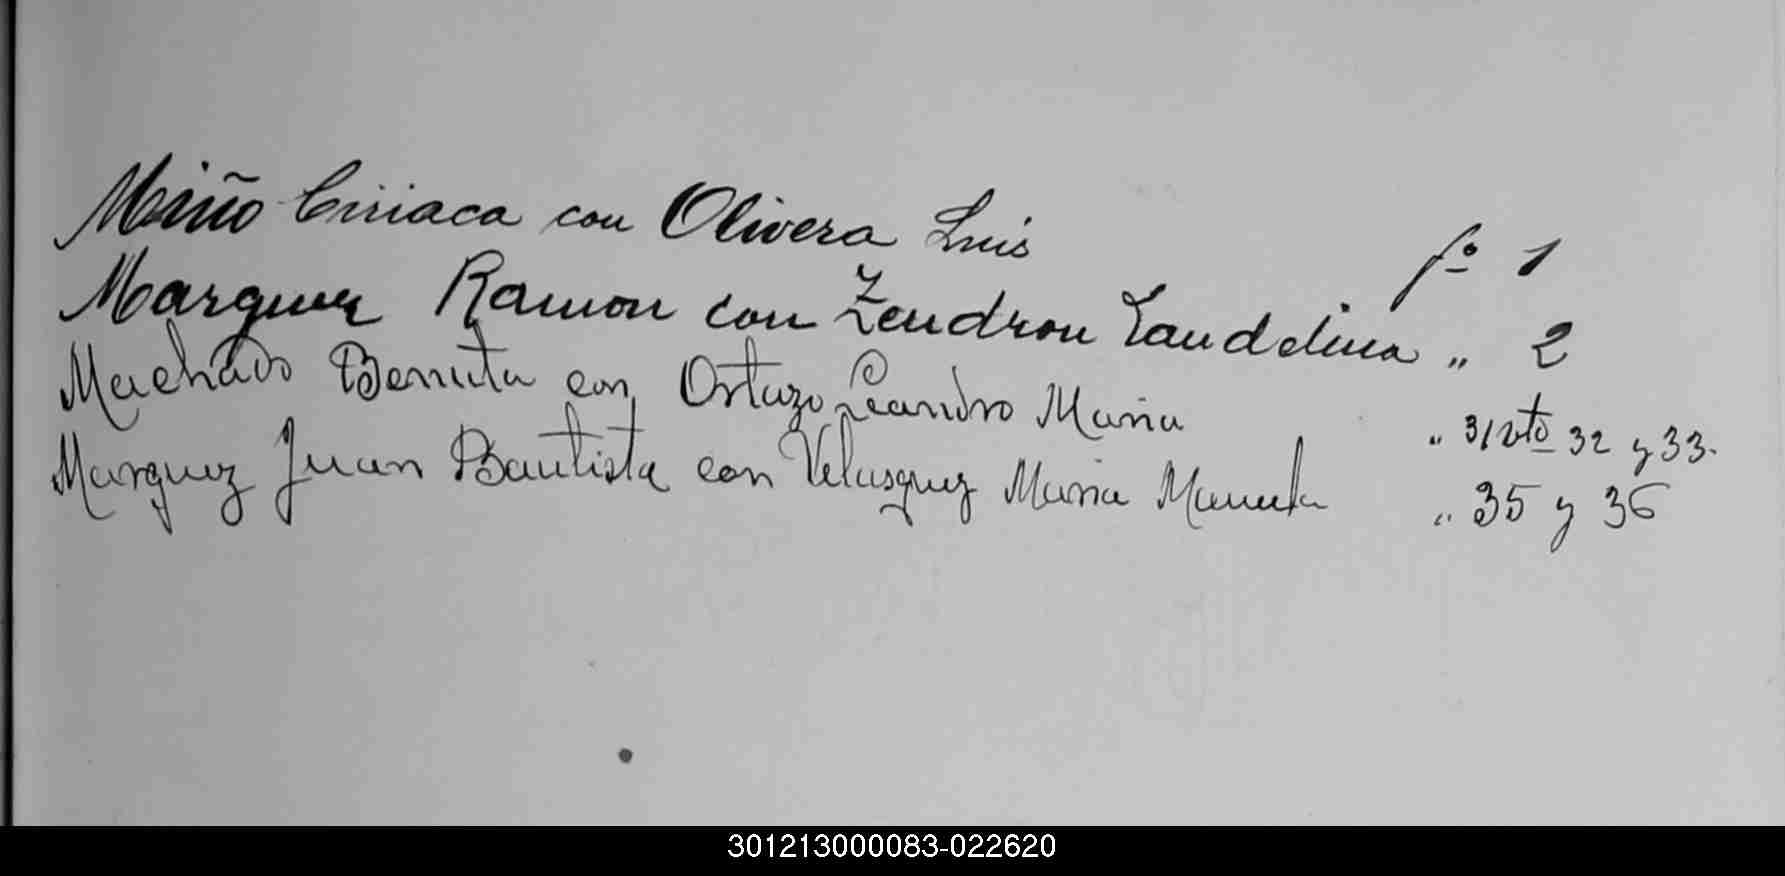 Miño Ciriaca con Olivera Luis fº 1
Marquez Ramon con Zendron Laudelina " 2
Machado Benita con Ortuzo Leandro Maria " 31 vto 32 y 33.
Marquez Juan Bautista con Velasquez Maria Manuela " 35 y 36
301213000083-022620